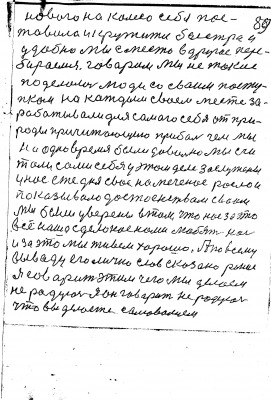 нового на колесо себя пос-
тавила и кружити быстро и
удобно мы с места вдругое пере-
бираемся, говорим мы не такие
поделом люди со своим посту-
пком на каждом своем месте за-
рабатывали для самого себя от при-
роды причитающую прибыл чем мы
на одно время были довольно мы счи-
тали сами себя у этом деле заслуженн
у нас с же дня свое намеченое росло и
показывало достоенствам своим
мы были уверены в том что нас за то
всё наше сделаное нами любят нас
и за это мы живем хорошо, А по всему
выводу его лично слов сказано ранее
Я говорит этим чего мы делаем
не радуюся Я он говорит не радуюся
что вы делаете самовольем